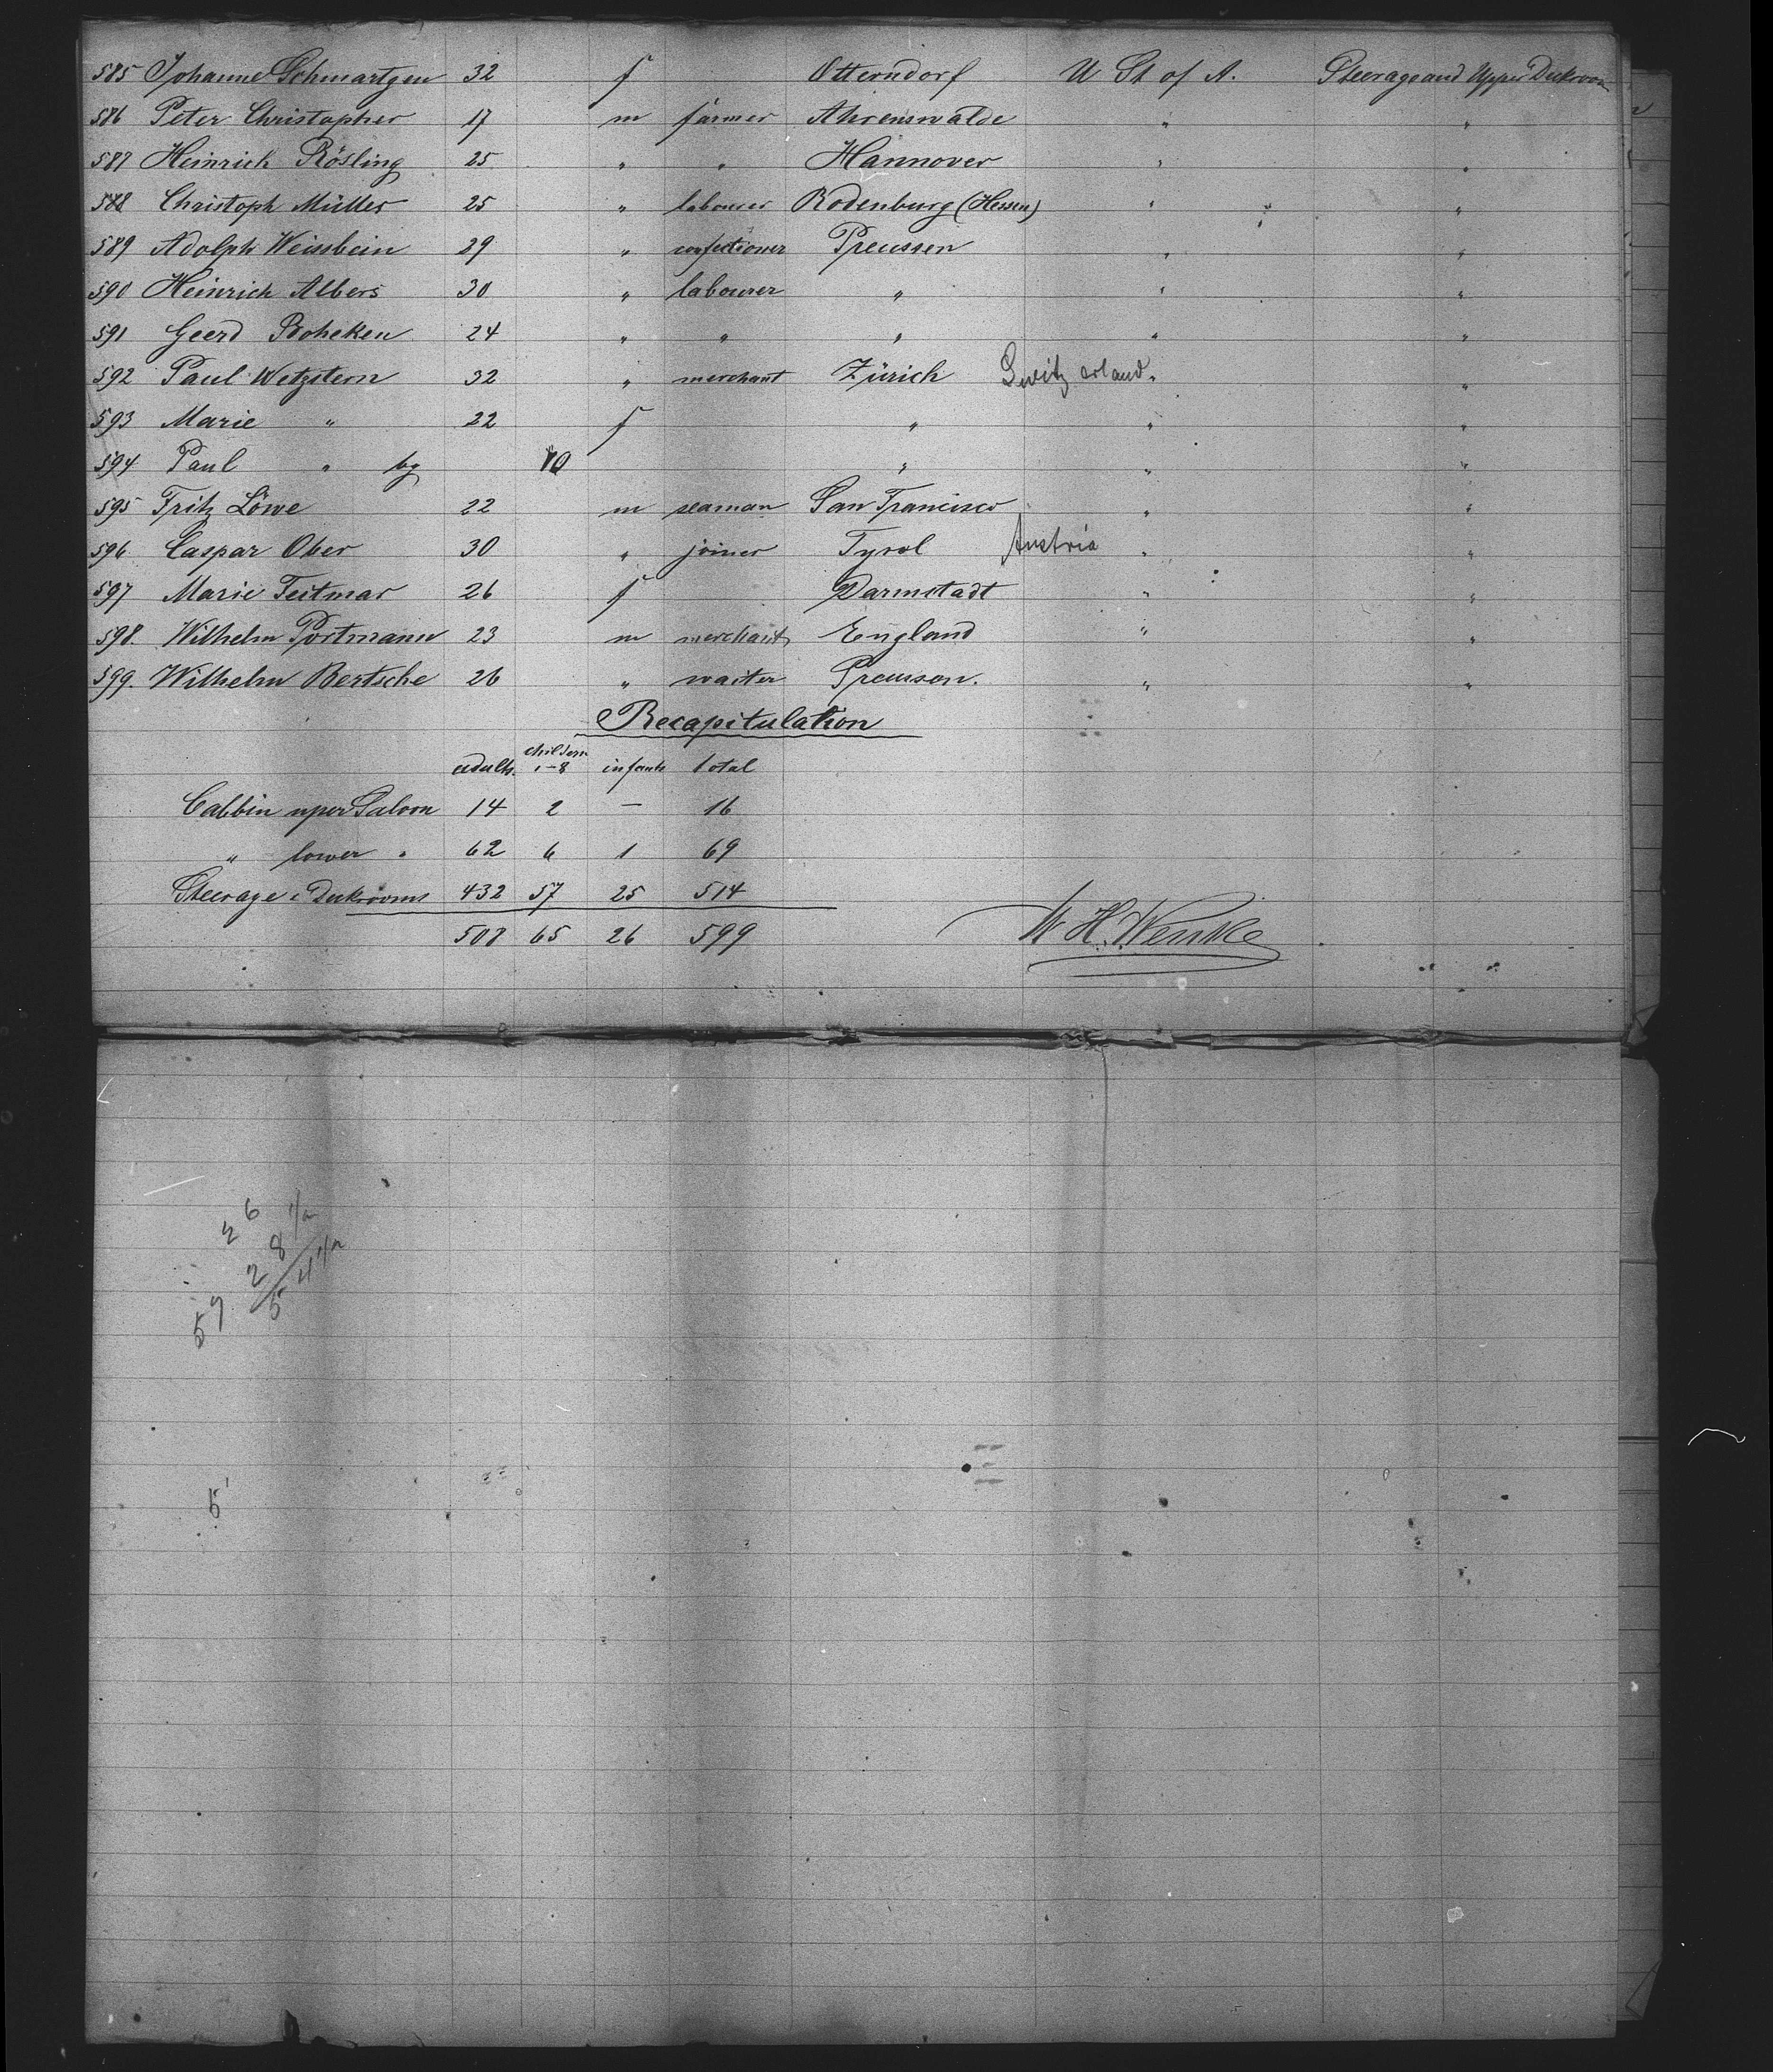 585 Johanne Schmartgen 32 f Otterndorf U St of A. Steerage and Upper Deckroom
586 Peter Christopher 17 m farmer Ahrenswalde " "
587 Heinrich Rösling 25 " " Hannover " "
588 Christoph Müller 25 " labourer Rodenburg (Hessen) " "
589 Adolph Weissbein 29 " confectioner Preussen " "
590 Heinrich Albers 30 " labourer " " "
591 Geerd Boheken 24 " " " " "
592 Paul Wetzstern 32 " merchant Zürich Switzerland " "
593 Marie " 22 f " " "
594 Paul " bg 10 " " "
595 Fritz Löwe 22 m seaman San Francisco " "
596 Caspar Ober 30 " joiner Tyrol Austria " "
597 Marie Teitmar 26 f Darmstadt " "
598. Wilhelm Portmann 23 m merchant England " "
599. Wilhelm Bertsche 26 " waiter Preussen. " "
Recapitulation
adults. children 1-8 infants total
Cabbin uper Saloon 14 2 — 16
" lower " 62 6 1 69
Steerage & Deckrooms 432 57 25 514
508 65 26 599
26
28 1/2
54 1/2
57
5